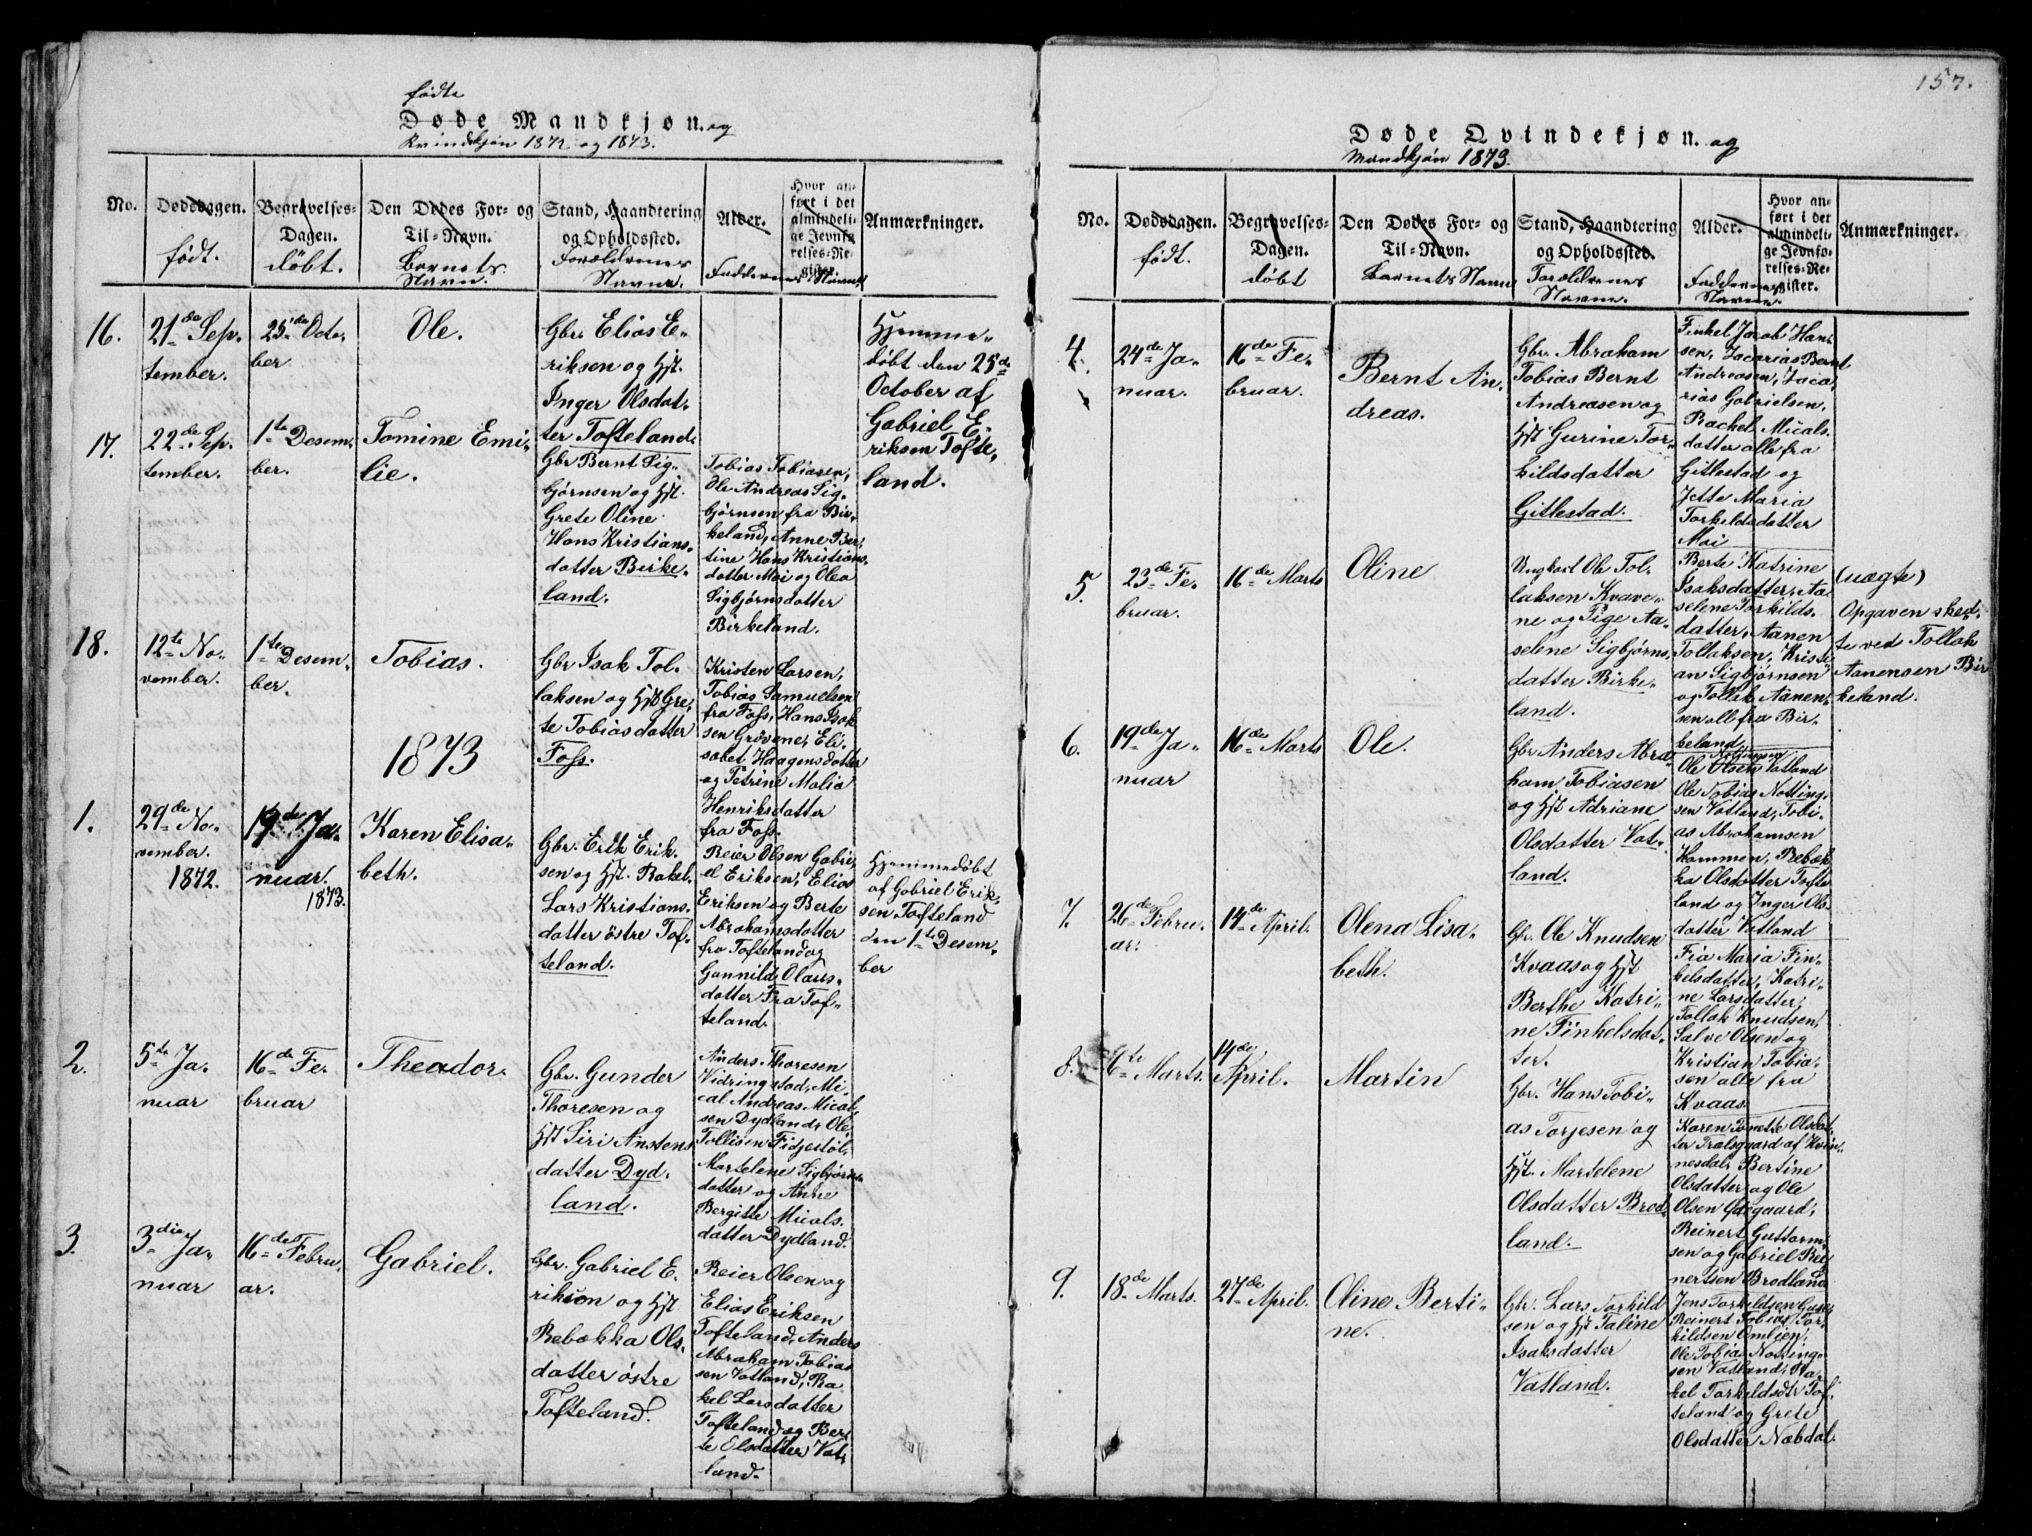 157.
fødte
Døde Mandkjøn. og
Kvindekjøn 1872 og 1873.
No.
Dødsdagen.
født.
Begravelses-
Dagen.
døbt.
Den Dødes For- og
Til-Navn.
Barnets
Navn.
Stand, Haandtering
og Opholdssted.
Forældrenes
Navne.
Alder.
Faddernes Navne
Hvor an-
ført i det
almindeli-
ge Jevnfø-
relses-Re-
gister.
Anmærkninger.
16.
21de Sep-
tember.
25de Octo-
ber
Ole.
Gbr. Elias E-
riksen og Hst.
Inger Olsdat-
ter Tofteland.
Hjemme-
døbt den 25de
October af
Gabriel E-
riksen Tofte-
land.
17.
22de Sep-
tember.
1te Desem-
ber.
Tomine Emi-
lie.
Gbr Bernt Sig-
bjørnsen og Hst.
Grete Oline
Hans Kristians-
datter Birke-
land.
Tobias Tobiasen,
Ole Andreas Sig-
bjørnsen fra Bir-
keland, Anne Ber-
tine Hans Kristians-
datter Moi og Olea
Sigbjørnsdatter
Birkeland.
18.
12te No-
vember.
1te Desem-
ber.
Tobias.
Gbr Isak Tol-
laksen og Hst Gre-
te Tobiasdatter
Foss.
Kristen Larsen,
Tobias Samuelsen
fra Foss, Hans Isak
sen Grøvene, Eli-
sabet Haagensdatter
og Petrine Malia
Henriksdatter
fra Foss.
1873
1.
29de No-
vember.
1872.
19de Ja-
nuar.
1873.
Karen Elisa-
beth.
Gbr. Erik Erik-
sen og Hst. Rakel
Lars Kristians-
datter østre Tof-
teland.
Reier Olsen Gabri-
el Eriksen, Elias
Eriksen og Berte
Abrahamsdatter
fra Tofteland og
Gunnild Olaus-
datter Fra Tof-
teland.
Hjemmedøbt
af Gabriel Erik-
sen Tofteland
den 1te Desem-
ber
2.
5te Ja-
nuar
16de Fe-
bruar
Theador.
Gbr. Gunder
Thoresen og
Hst Siri Anstens
datter Dyd-
land.
Anders Thoresen
Vidringstad, Mi-
cal Andreas Mical-
sen Dydland, Ole
Tollisen Fidjestøl,
Martelene Sigbjørns-
datter og Anne
Bergitte Micals-
datter Dydland.
3.
3die Ja-
nuar
16de Febru-
ar.
Gabriel.
Gbr. Gabriel E-
riksen og Hst
Rebækka Ols-
datter østre
Tofteland.
Reier Olsen og
Elias Eriksen
Tofteland, Anders
Abraham Tobias
sen Vatland, Ra-
kel Larsdatter
Tofteland og Ber-
te Elsdatter Vat-
land.
Døde Qvindekjøn. og
Mandkjøn 1873.
No.
Dødsdagen.
født.
Begravelses-
Dagen.
døbt
Den Dødes For- og
Til-Navn.
Barnets Navn
Stand, Haandtering
og Opholdssted.
Forældrenes
Navne.
Alder.
Faddernes
Navne.
Hvor an-
ført i det
almindeli-
ge Jevnfø-
relses-Re-
gister.
Anmærkninger.
4.
24de Ja-
nuar.
16de Fe-
bruar.
Bernt An-
dreas.
Gbr. Abraham
Tobias Bernt
Andreasen og
Hst Gurine Tor-
kildsdatter
Gitlestad.
Finkel Jacob Han-
sen, Zacarias Bernt
Andreasen, Zaca-
rias Gabrielsen,
Rachel Micals-
datter alle fra
Gitlestad og
Jette Maria
Torkeldsdatter
Moi
5.
23de Fe-
bruar.
16de Marts
Oline
Ungkarl Ole Tol-
laksen Kvave-
ne og Pige Aa-
selene Sigbjørns-
datter Birke-
land.
Berte Katrine
Isaksdatter, Aa-
selene Torkilds-
datter, Aanen
Tollaksen, Kristi-
an Sigbjørnsen
og Tollak Aanen-
sen alle fra Bir-
keland
(uægte)
Opgaven skeet-
te ved Tollak
Aanensen Bir
keland.
6.
19de Ja-
nuar
16de Marts
Ole.
Gbr Anders Abra-
ham Tobiasen
og Hst Adriane
Olsdatter Vat-
land.
Ole Olsen Vatland
Ole Tobias Notting-
sen Vatland, Tobi-
as Abrahamsen
Hammen, Rebæk
ka Olsdatter Tofte
land og Inger Ols-
datter Vatland
7.
26de Febru-
ar.
14de April.
Olena Lisa-
beth.
Gbr. Ole Knudsen
Kvaas og Hst
Berthe Katri-
ne Finkelsdat-
ter.
Fia Maria Fin-
kelsdatter, Katri-
ne Larsdatter,
Tollak Knudsen,
Salve Olsen og
Kristian Tobia-
sen alle fra
Kvaas.
8.
6te Marts.
14de
April.
Martin
Gbr. Hans Tobi-
as Torjesen og
Hst. Martelene
Olsdatter Brød-
land.
Karen Tonette Olsdat-
ter Tralsgaard af Kvin-
nesdal, Bertine
Olsdatter og Ole
Olsen Ødegaard,
Reinert Guttorm-
sen og Gabriel Rei-
nertsen Brødland
9.
18de Marts.
27de April.
Oline Berti-
ne.
Gbr. Lars Torkild
sen og Hst Taline
Isaksdatter
Vatland.
Jens Torkildsen
Reinert Tobias Tor-
kildsen Omlien,
Ole Tobias Notting-
sen Vatland, Ra-
kel Torkildsdtr Tof-
teland og Grete
Olsdatter Nebdal.